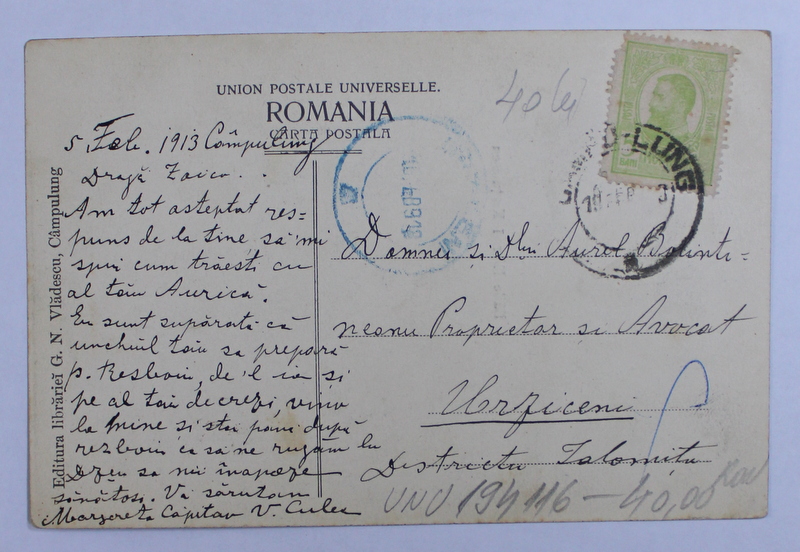 UNION POSTALE UNIVERSELLE.
ROMANIA
CARTA POSTALA
40 lei
5 Feb. 1913 Câmpulung
Dragă Zoico.
Am tot asteptat res=
puns de la tine să 'mi
spui cum trăesti cu
al tău Aurică.
Eu sunt supărată că
unchiul tău se prepară
p. Resboiu, de 'l ia și
pe al tău de crezi, vino
la mine si stai pănă după
rezboiu ca să ne rugăm lu
Dzeu sa nii înapoeze
sănătoși. Vă sărutam
Margareta Căpitan V. Culea
Domnei și Dlui Aurel Bolinti=
neanu Proprietar si Avocat
Urziceni
Districtu Ialomița
UNU 194116 - 40,00
Editura librăriei G. N. Vlădescu, Câmpulung
BANI
LUNG